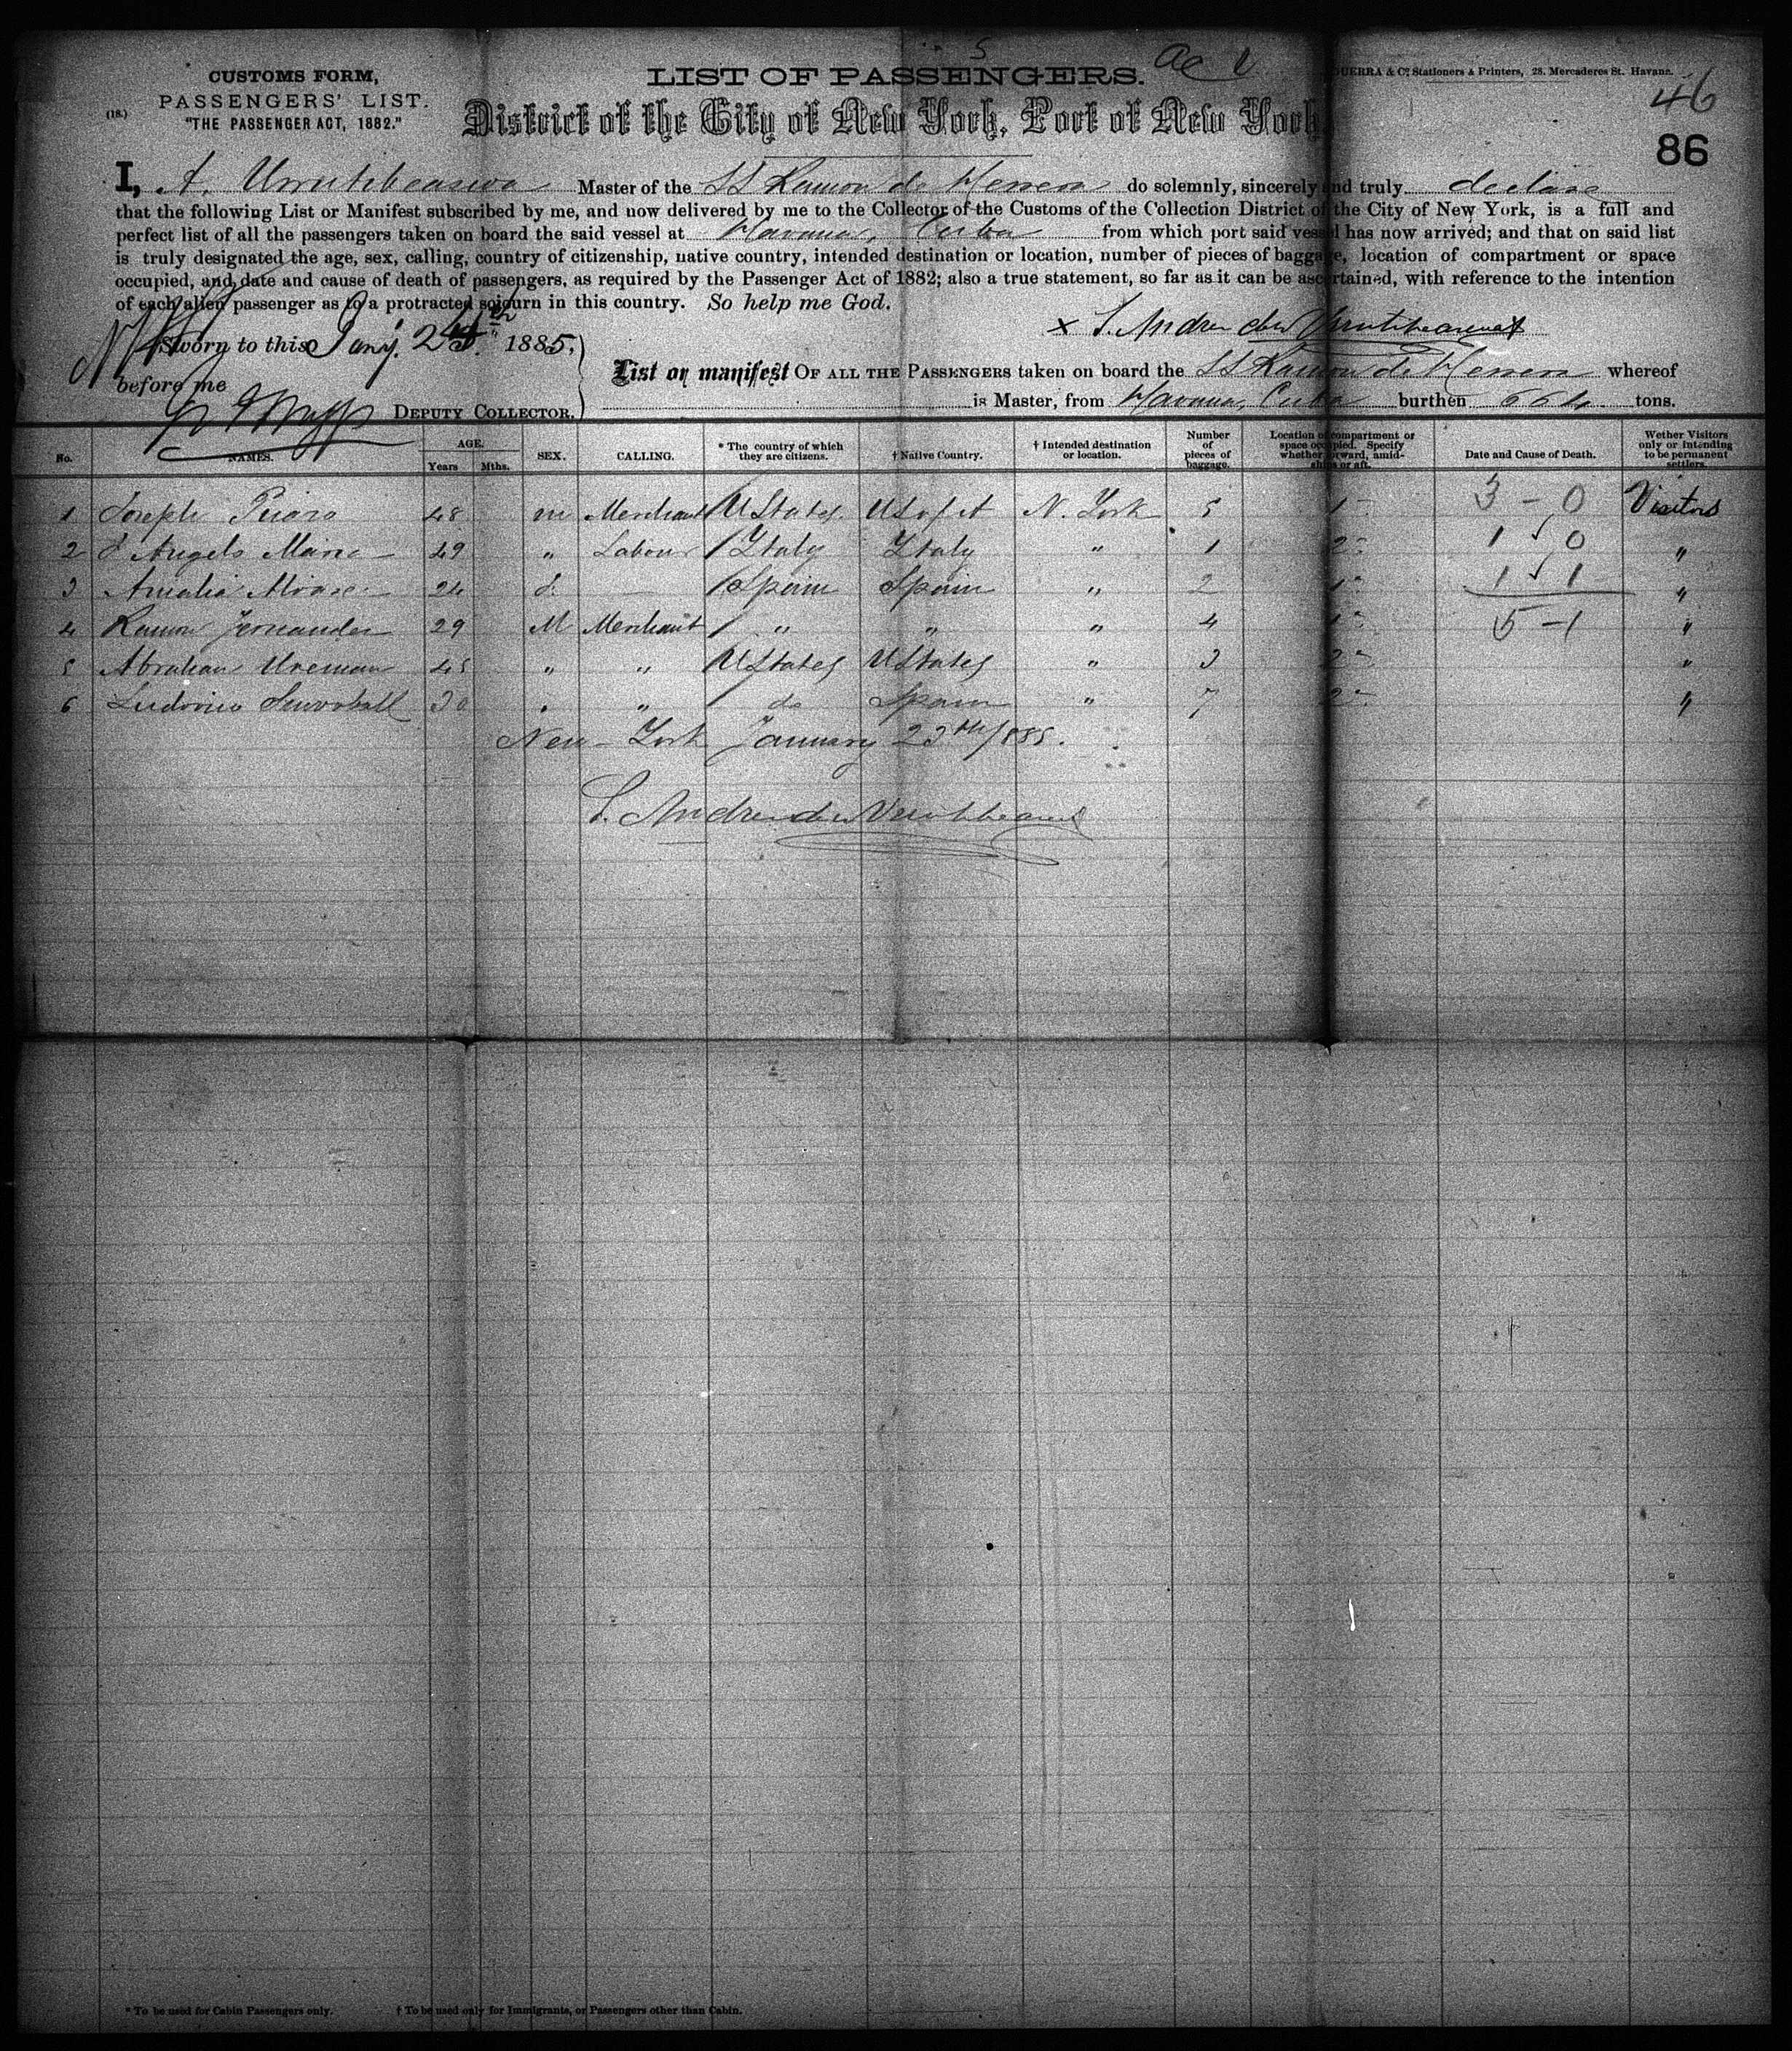 CUSTOMS FORM,
PASSENGERS' LIST.
"THE PASSENGER ACT, 1882."
(18.)
LIST OF PASSENGERS.
GUERRA & Co. Stationers & Printers, 28. Mercaderes St. Havana.
46
District of the City of New York, Port of New York
86
I, A. Master of the SS Ramon de Herrera do solemnly, sincerely and truly declare
that the following List or Manifest subscribed by me, and now delivered by me to the Collector of the Customs of the Collection District of the City of New York, is a full and
perfect list of all the passengers taken on board the said vessel at Havana, Cuba from which port said vessel has now arrived; and that on said list
is truly designated the age, sex, calling, country of citizenship, native country, intended destination or location, number of pieces of baggage, location of compartment or space
occupied, and date and cause of death of passengers, as required by the Passenger Act of 1882; also a true statement, so far as it can be ascertained, with reference to the intention
of each alien passenger as to a protracted sojourn in this country. So help me God.
Sworn to this Jany. 1885,
before me
DEPUTY COLLECTOR.
List or manifest OF ALL THE PASSENGERS taken on board the SS Ramon de Herrera whereof
is Master, from Havana, Cuba burthen 664 tons.
No. NAMES. AGE. Years Mths. SEX. CALLING. * The country of which they are citizens. † Native Country. † Intended destination or location. Number of pieces of baggage. Location of compartment or space occupied. Specify whether forward, amidships or aft. Date and Cause of Death. Wether Visitors only or intending to be permanent settlers.
1 Joseph 48 m Merchant UStates US of A N. York 5 1 3 - 0 Visitors
2 d'Angelo 49 " Labour Italy Italy " 1 2 1 0 "
3 Amalia 24 f. — Spain Spain " 2 1 1 1 "
4 Ramon Fernandez 29 M Merchant " " " 4 1 5 - 1 "
5 Abraham 45 " " UStates UStates " 3 2 "
6 Ludovico 30 " " do Spain " 7 2 "
New-York January 23th/885.
* To be used for Cabin Passengers only. † To be used only for Immigrants, or Passengers other than Cabin.